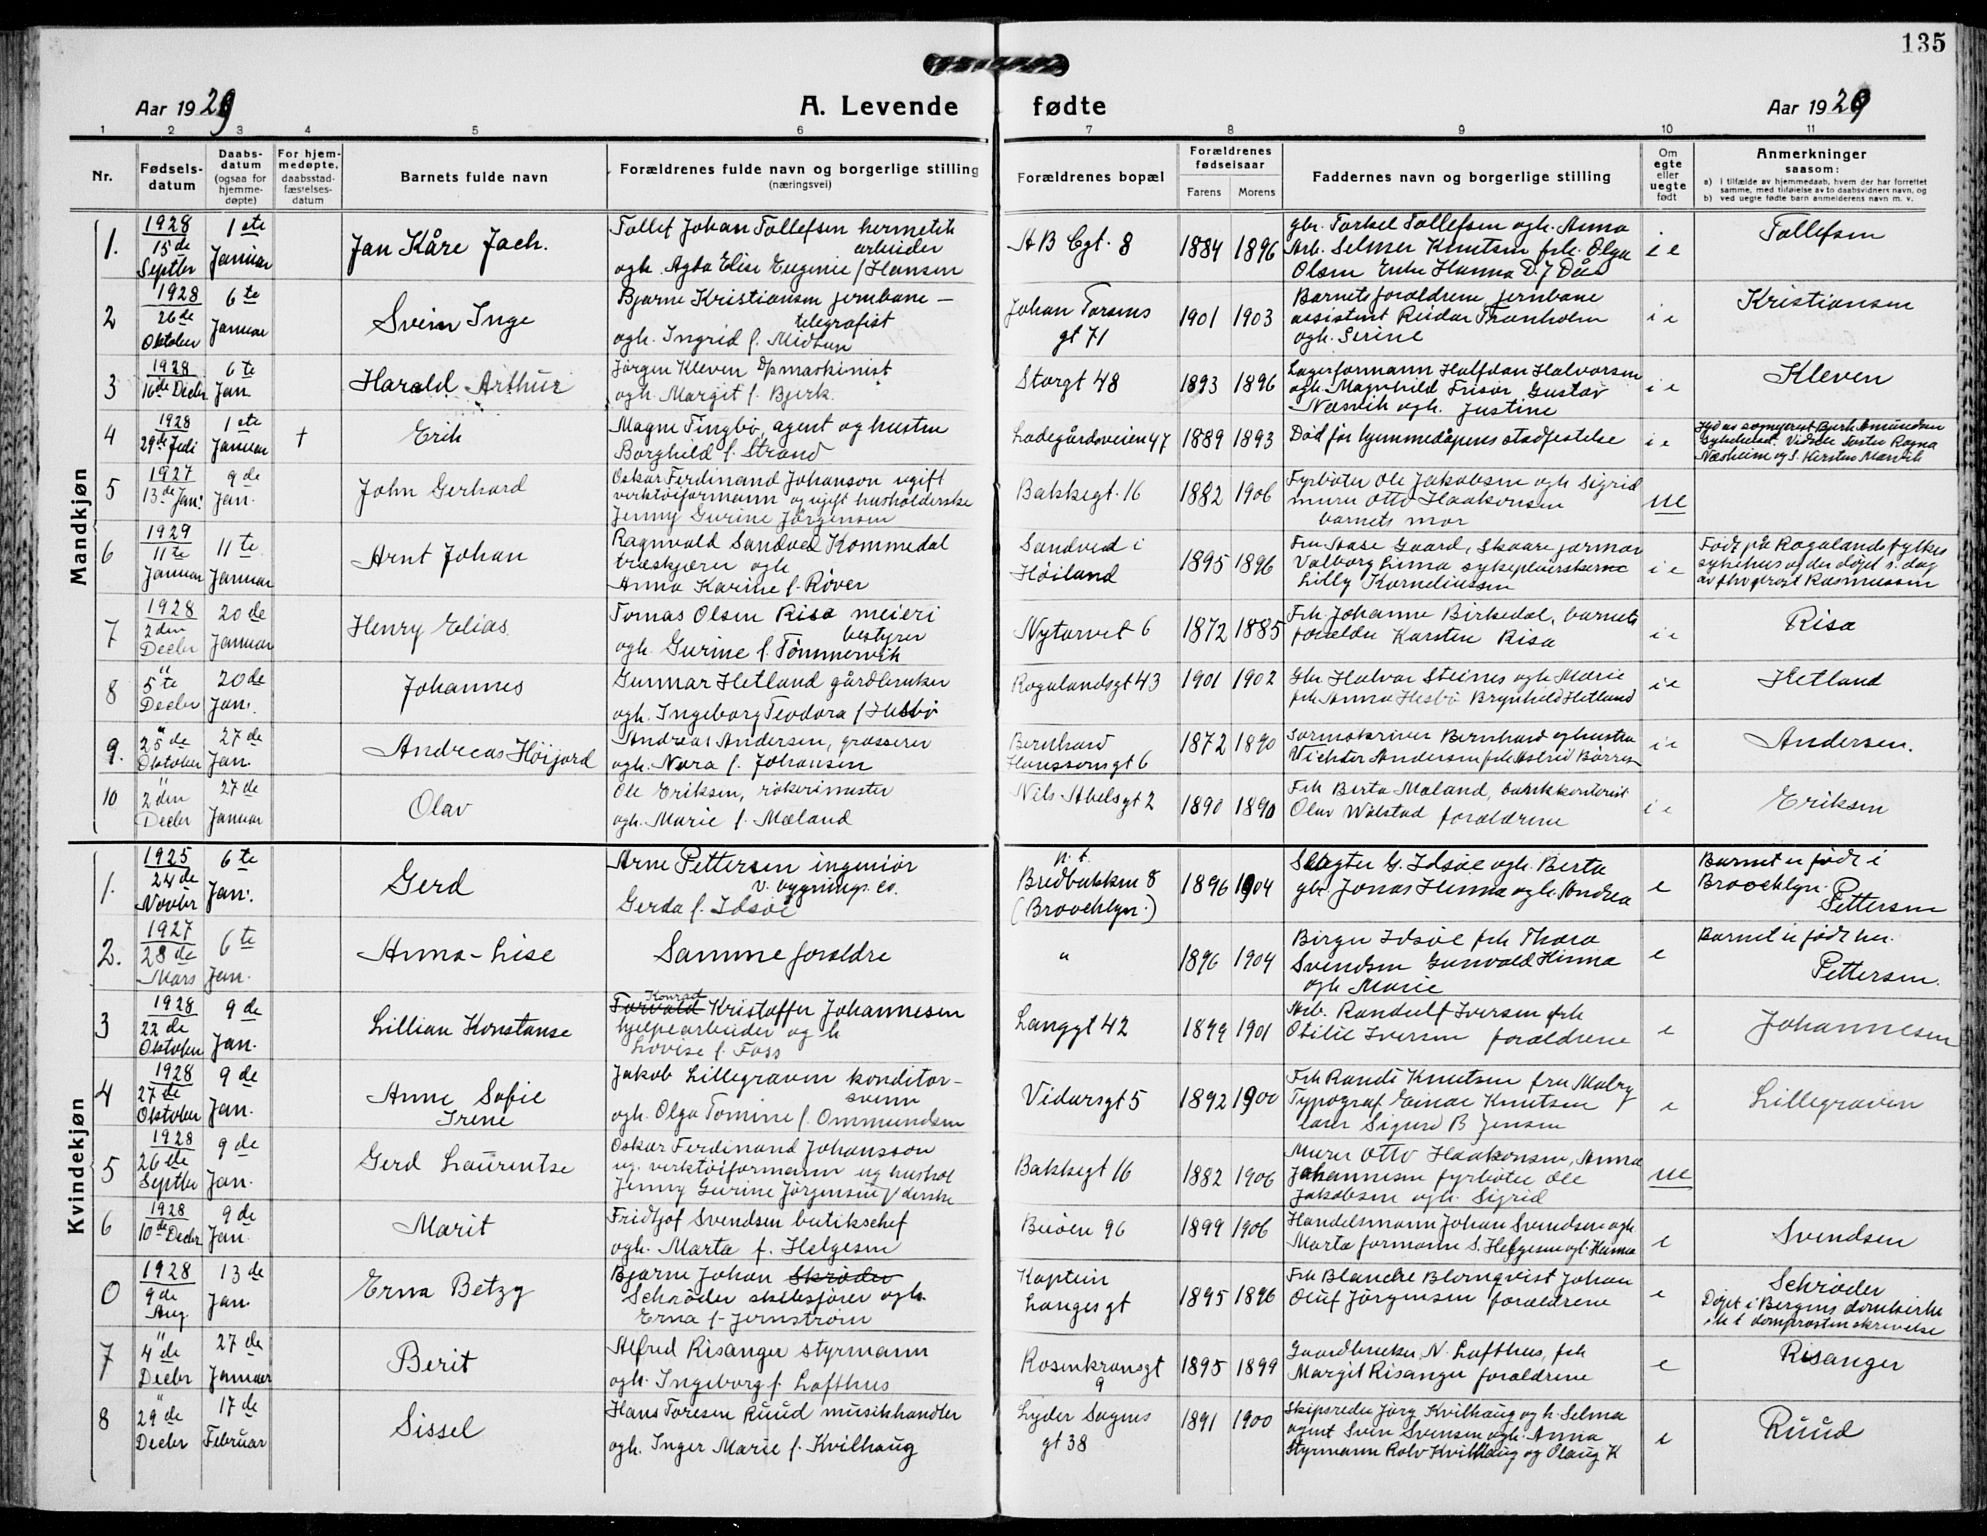 135
Aar 1929
A. Levende fødte
Aar 1929
1 2 3 4 5 6 7 8 9 10 11
Nr.
Fødsels-
datum
Daabs-
datum
(ogsaa for
hjemme-
døpte)
For hjem-
medøpte,
daabsstad-
fæstelses-
datum
Barnets fulde navn
Forældrenes fulde navn og borgerlige stilling
(næringsvei)
Forældrenes bopæl
Forældrenes
fødselsaar
Farens Morens
Faddernes navn og borgerlige stilling
Om
egte
eller
uegte
født
Anmerkninger
saasom:
a) i tilfælde av hjemmedaab, hvem der har forrettet
samme, med tilføielse av to daabsvidners navn, og
b) ved uegte fødte barn anmelderens navn m. v.
Mandkjøn
1. 1928 15 de Septbr
1ste Januar
Jan Kåre Jach.
Tollef Johan Tollefsen hermetik
arbeider
ogh. Agda Elise Eugenie f Hansen
A B Cgt. 8
1884 1896
gbr. Torkel Tollefsen ogh. Anna
Arb. Selmer Knutsen frk. Olga
Olsen Enke Hanna
ie
Tollefsen
2 1928 26 de Oktober
6te Januar
Svein Inge
Bjarne Kristiansen jernbane-
telegrafist
ogh. Ingrid f. Midtun
Johan Torsens
gt 71
1901 1903
Barnets forældrene jernbane
assistent Reidar Tranholm
ogh. Serine
ie
Kristiansen
3 1928 16 de Decbr
6te Jan.
Harald Arthur
Jørgen Kleven Dpmaskinist
ogh. Margit f. Bjerk.
Storgt 48
1893 1896
Lagerformann Halfdan Halvorsen
ogh. Magnhild Frisør Gustav
Næsvik ogh. Justine
ie
Kleven
4 1928 29 de Juli
1ste Januar
†
Erik
Magne Tingbø, agent og hustru
Borghild f. Strand
Ladegårdsveien 47
1889 1893
Død før hjemmedåpens stadfestelse
ie
5 1927 13 de Jan.
9 de Jan.
John Gerhard
Oskar Ferdinand Johanson ugift
verktøiformann og ugift husholderske
Jenny Gurine Jørgensen
Bakkegt. 16
1882 1906
Fyrbøter Ole Jakobsen ogh Sigrid
murer Otto Haakonsen
barnets mor
ue
6 1929 11te Januar
11te Januar
Arnt Johan
Ragnvald Sandved Kommedal
træskjærer ogh
Anna Karine f. Røver
Sandved i
Høiland
1895 1896
Fru Aase Gaard, Skaare jormor
Valborg Lima sykepleierskerne
Lilly Korneliussen
ie
Født på Rogalands fylkes
sykehus og der døpt s. dag
av flhvprest Rasmussen
7 1928 2den Decbr
20 de Januar
Henry Elias
Tomas Olsen Risa meieri
bestyrer
ogh. Gurine f. Tømmervik
Nytorvet 6
1872 1885
Frk. Johanne Birkedal, barnets
forældre Karsten Risa
ie
Risa
8 " 5te Decbr
20 de Jan.
Johannes
Gunnar Hetland gårdbruker
ogh. Ingeborg Teodora f Hesbø
Rogalandsgt 43
1901 1902
Gbr Halvar Steines ogh. Marie
frk Anna Hesbø Brynhild Hetland
ie
Hetland
9. " 25 de Oktober
27 de Jan.
Andreas Höijord
Andreas Andersen, grosserer
ogh. Nora f. Johansen
Bernhard
Hanssonsgt 6
1872 1890
Sormskriver Bernhard og hustru
Andersen frk Astrid Børresen
ie
Andersen.
10 " 2den Decbr
27 de Januar
Olav
Ole Eriksen, rökerimester
ogh. Marie f. Mæland
Nils Abelsgt 2
1890 1890
Frk Berta Mæland, bankkontorist
Olav Wålstad forældrene
ie
Eriksen
Kvindekjøn
1. 1925 24 de Novbr
6te Jan.
Gerd
Arne Pettersen ingeniør
v. bygnings. co.
Gerda f. Idsöe
p. t.
Bredbakken 8
(Broocklyn.)
1896 1904
Slagter G. Idsöe ogh. Berta
gbr. Jonas Hinna ogh. Andrea
e
Barnet er födt i
Broocklyn.
Pettersen
2. 1927 28 de Mars
6te Jan.
Anna-Lise
Samme forældre
"
1896 1904
Birger Idsöe frk Thora
Svendsen Gunvald Hinna
ogh Marie
e
Barnet er födt her.
Pettersen.
3 1928 22 de Oktober
9 de Jan.
Lillian Konstanse
Konrad
Torvald Kristoffer Johannesen
hjelpearbeider og h
Lovise f. Foss
Langgt 42
1899 1901
Arb. Randulf Iversen frk
Otilie Iversen forældrene
e
Johannesen
4 1928 27 de Oktober
9 de Jan.
Anne Sofie
Irene
Jakob Lillegraven konditor-
svenn
ogh. Olga Tomine f. Ommundsen
Vidarsgt 5
1892 1900
Frk Randi Knutsen fru Molly
Typograf Einar Knutsen
lærer Sigurd B Jensen
e
Lillegraven
5 1928 26 de Septbr
9 de Jan.
Gerd Laurentse
Oskar Ferdinand Johansson
ug. verktøiformann ug hushol
Jenny Gurine Jørgensen / derske
Bakkegt 16
1882 1906
Murer Otto Haakonsen, Anna
Johannesen fyrbøter Ole
Jakobsen ogh. Sigrid
ue
6 1928 10 de Decbr
9 de Jan
Marit
Fridtjof Svendsen butikschef
ogh. Marta f. Helgesen
Buöen 96
1899 1906
Handelsmann Johan Svendsen ogh
Marta formann S. Helgesen ogh. Hanna
e
Svendsen
0 1928 9 de Aug.
13 de Jan.
Erna Betzy
Bjarne Johan Skrøder
Schrøder skibsfører ogh.
Erna f. Jernstrøm
Kaptein
Langes gt
1895 1896
Frk Blanche Blomqvist Johan
Oluf Jørgensen forældrene
e
Schrøder
Døpt i Bergens domkirke
domprosten skrivelse
7 " 4 de Decbr
27 de Januar
Berit
Alfred Risanger styrmann
ogh. Ingeborg f. Lofthus
Rosenkransgt
9
1895 1899
Gaardbruker N. Lofthus, frk
Margit Risanger forældrene
e
Risanger
8 " 29 de Decbr
17 de Februar
Sissel
Hans Toresen Ruud musikhandler
ogh. Inger Marie f. Kvilhaug
Lyder Sagens
gt 38
1891 1900
Skipsreder Jørg Kvilhaug og h. Selma
agent Sven Svensen ogh. Anna
Styrmann Rolv Kvilhaug og Olaug K
e
Ruud